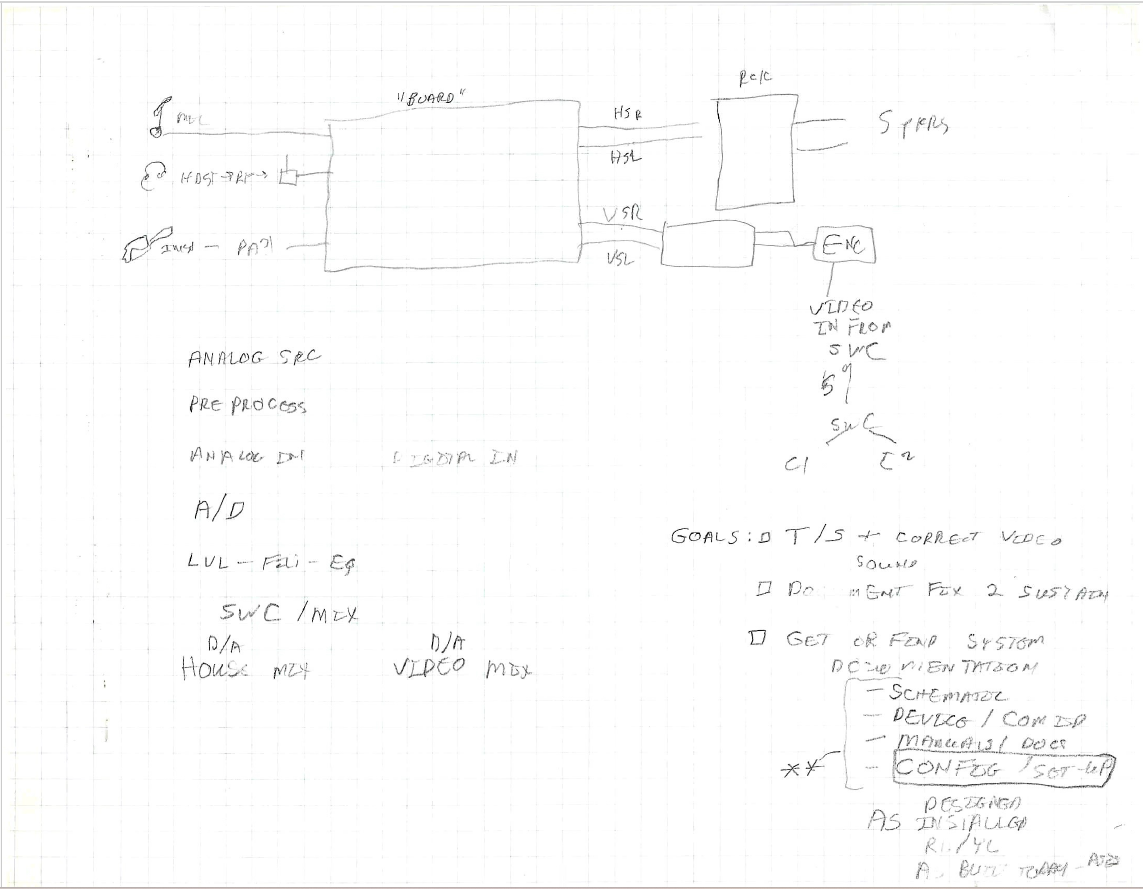 "BOARD"
MIC
HSR
HSL
SPKRS
HDST → RF →
VSR
VSL
ENC
VIDEO
IN FROM
SWC
SWC
C1
C2
ANALOG SRC
PRE PROCESS
ANALOG IN DIGITAL IN
A/D
LVL - FILT - EQ
SWC / MIX
D/A D/A
HOUSE MIX VIDEO MIX
GOALS: T/S + CORRECT VIDEO
SOUND
DOCUMENT FIX 2 SUSTAIN
GET OR FIND SYSTEM
DOCUMENTATION
- SCHEMATIC
- DEVICE / COM ID
- MANUALS / DOCS
** - CONFIG / SET-UP
DESIGNED
AS INSTALLED
TODAY